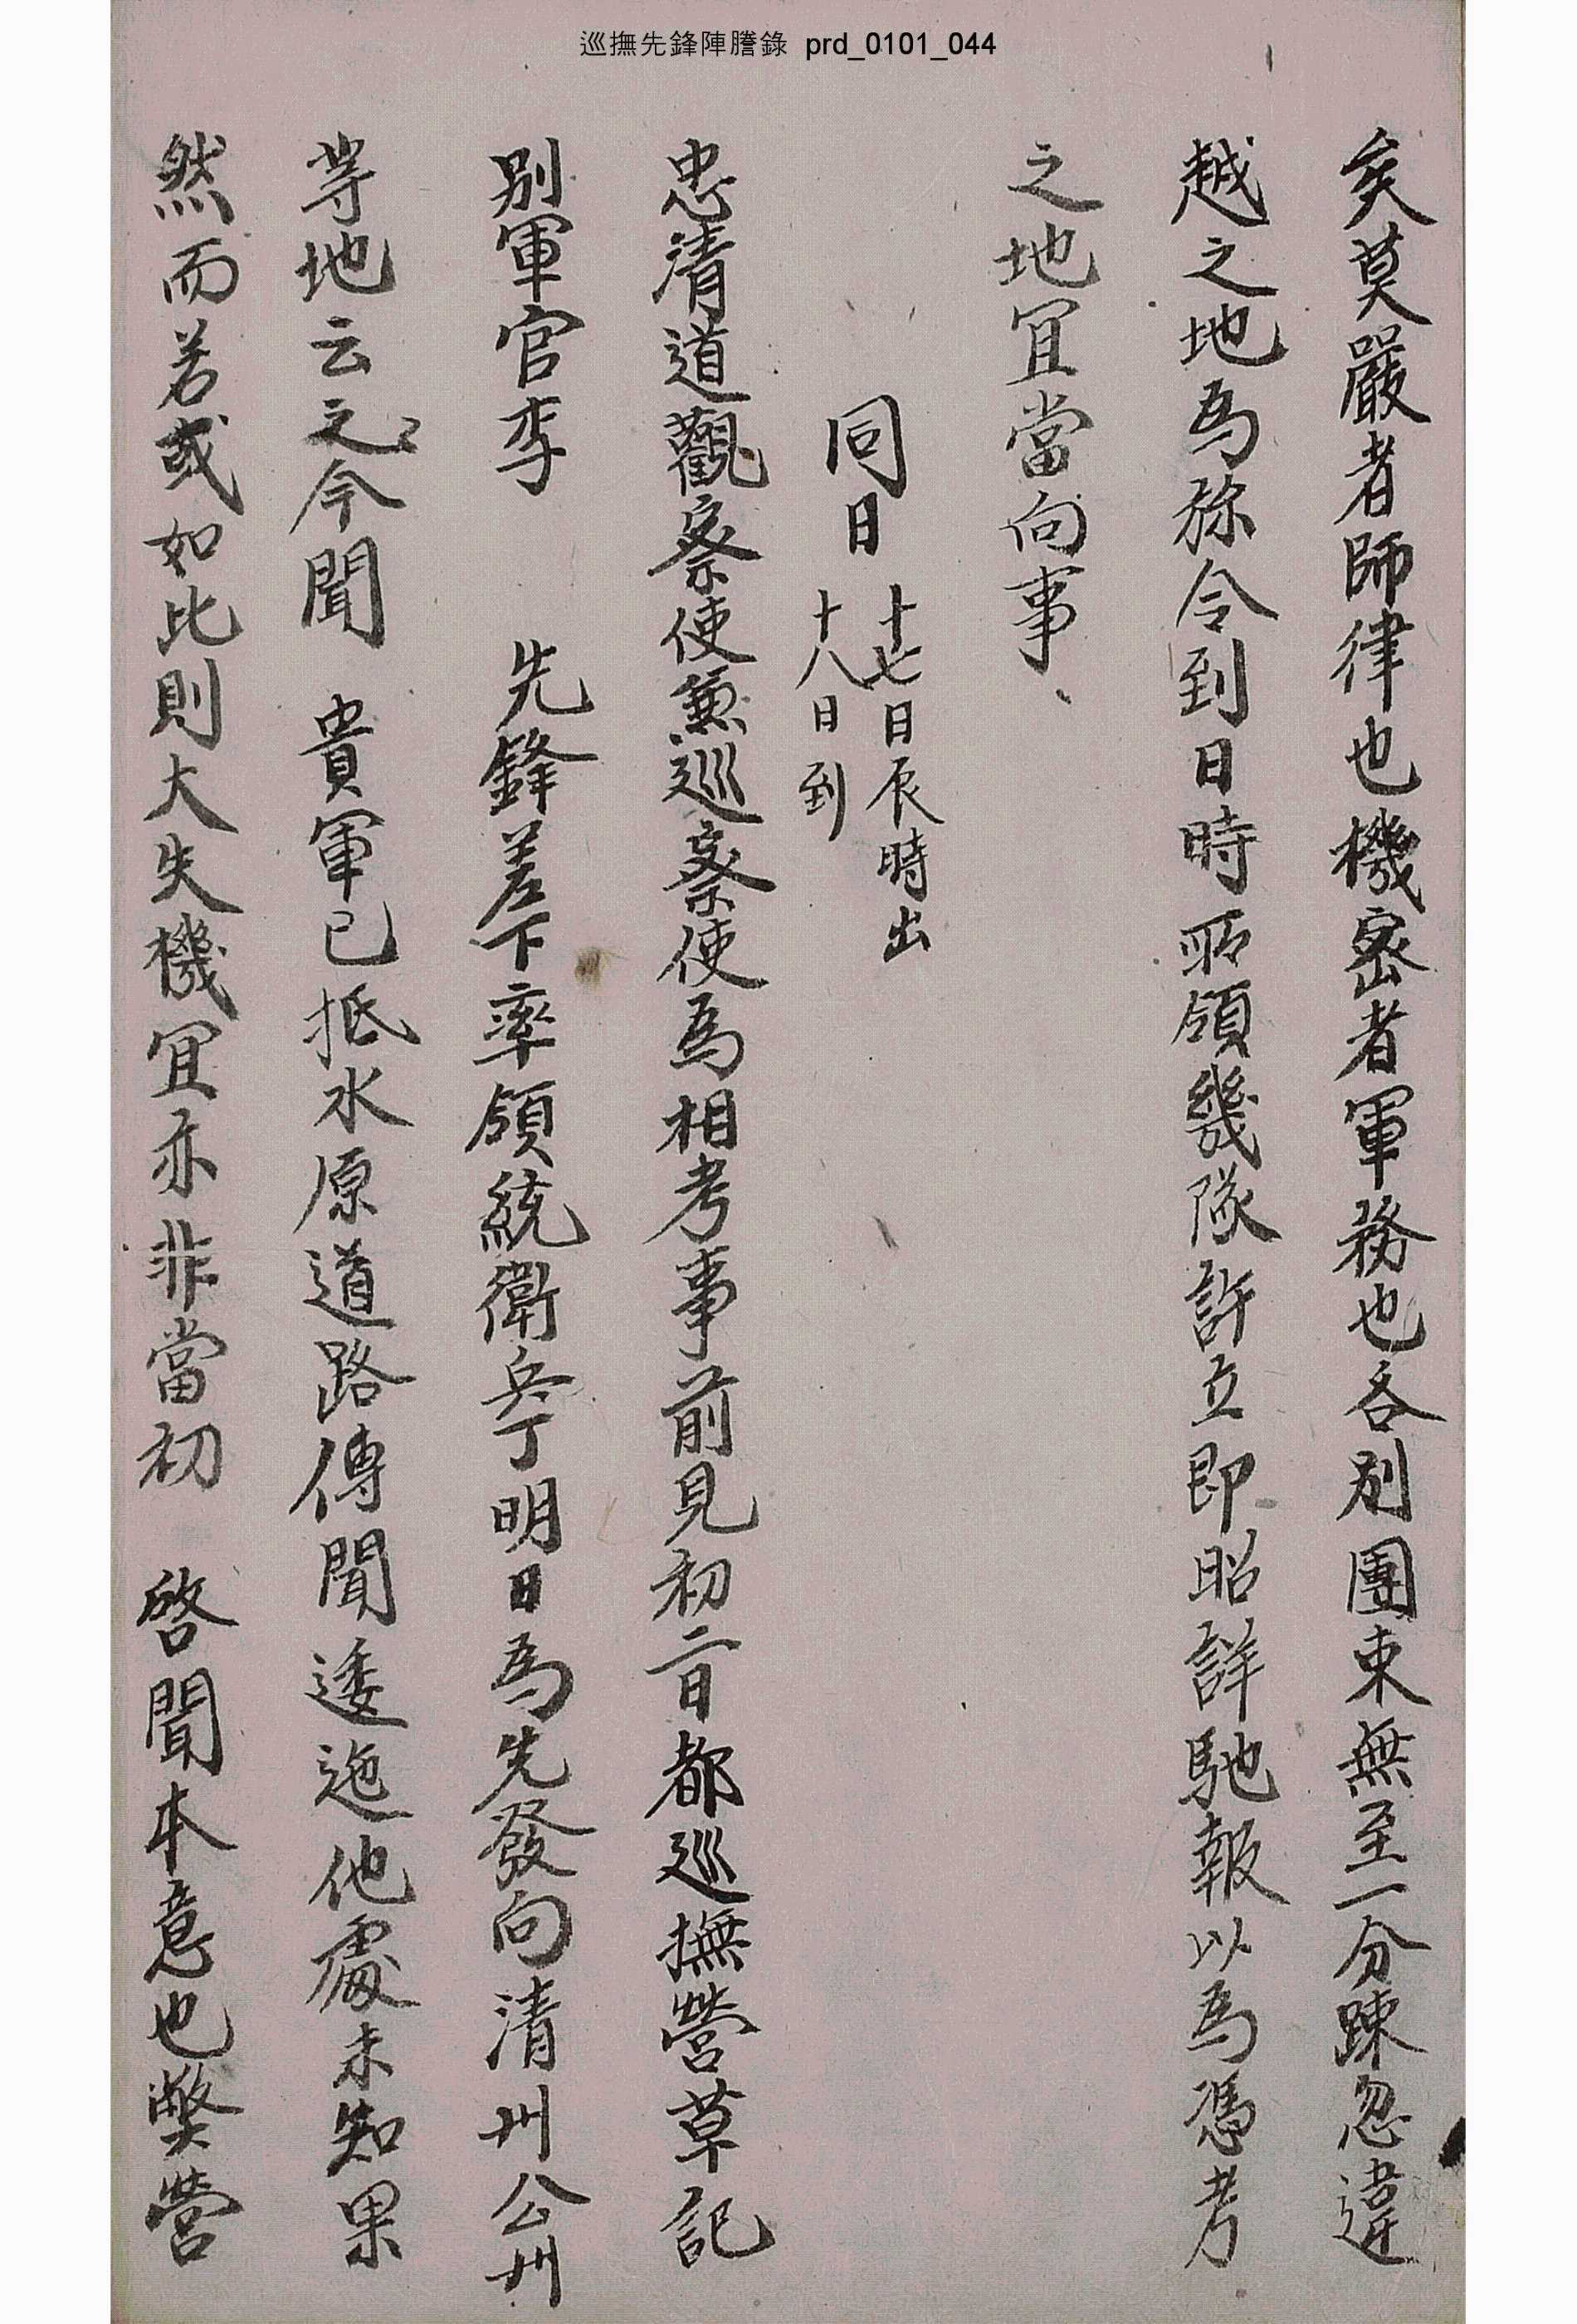 巡撫先鋒陣謄錄 prd_0101_044
矣莫嚴者師律也機密者軍務也各別團束無至一分踈忽違
越之地爲旀令到日時所領幾隊許立卽昭詳馳報以爲憑考
之地冝當向事
同日 十七日辰時出
十八日到
忠清道觀察使兼巡察使爲相考事前見初二日都巡撫營草記
別軍官李 先鋒差下率領統衛兵丁明日爲先發向清州公州
等地云之今聞 貴軍已抵水原道路傳聞逶迤他處未知果
然而若或如比則大失機冝亦非當初 啓聞本意也弊營